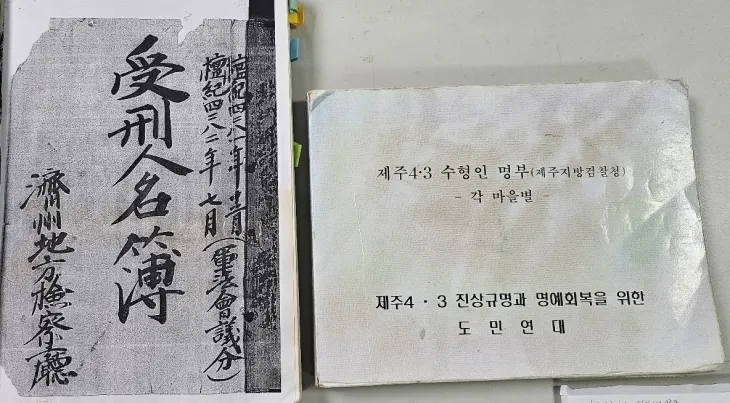 檀紀四二八一年十二月
檀紀四二八二年七月(軍法會議分)
受刑人名簿
濟州地方檢察廳
제주4·3 수형인 명부(제주지방검찰청)
- 각 마을별 -
제주4·3 진상규명과 명예회복을 위한
도민연대